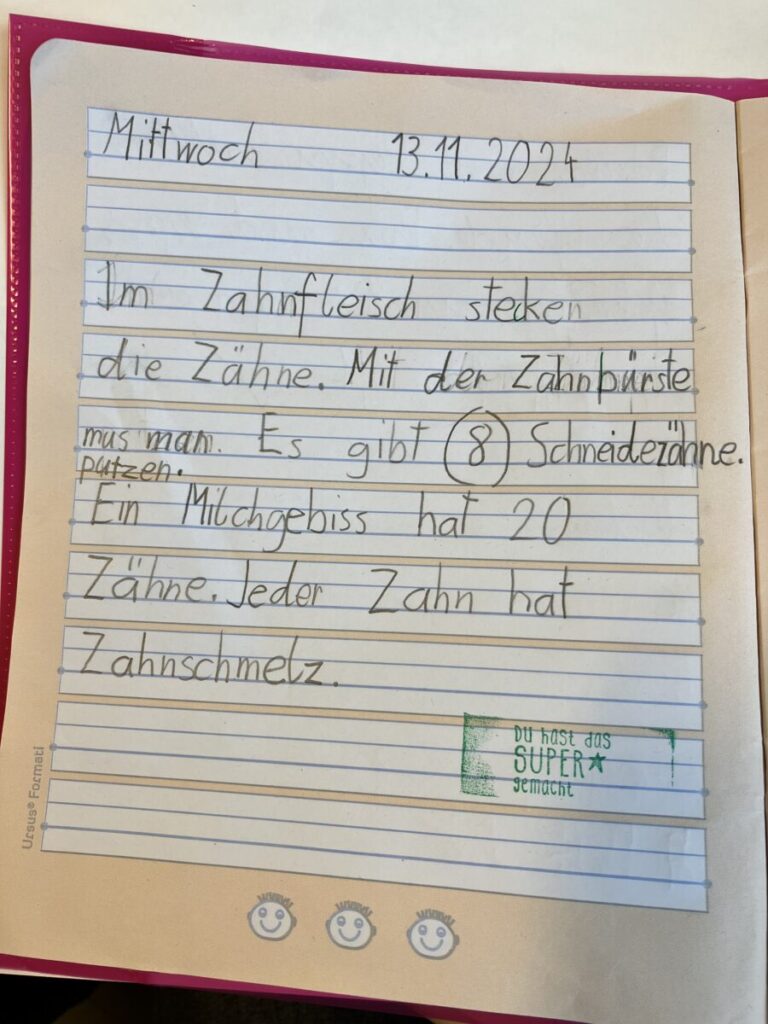 Mittwoch 13.11.2024
Im Zahnfleisch stecken
die Zähne. Mit der Zahnbürste
mus man. Es gibt 8 Schneidezähne.
putzen.
Ein Milchgebiss hat 20
Zähne. Jeder Zahn hat
Zahnschmelz.
DU hast das
SUPER
gemacht
Ursus® Formati